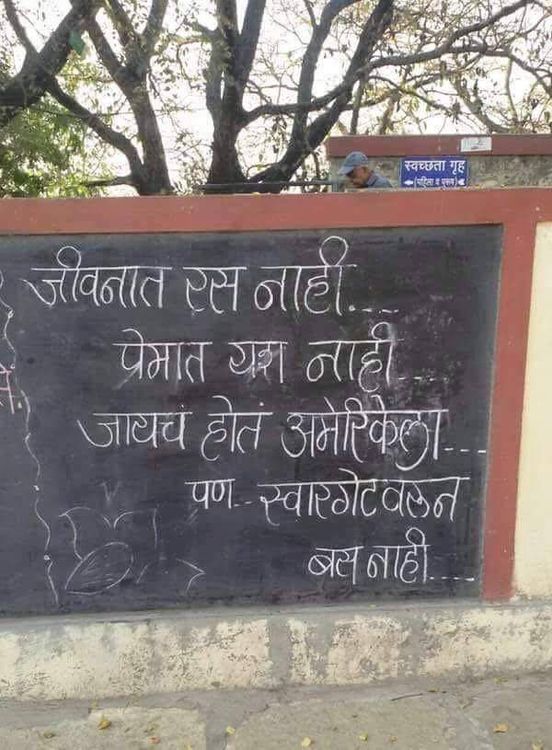 स्वच्छता गृह
(महिला व पुरूष)
जीवनात रस नाही....
प्रेमात यश नाही....
जायचं होतं अमेरिकेला....
पण.. स्वारगेटवरून
बस नाही....